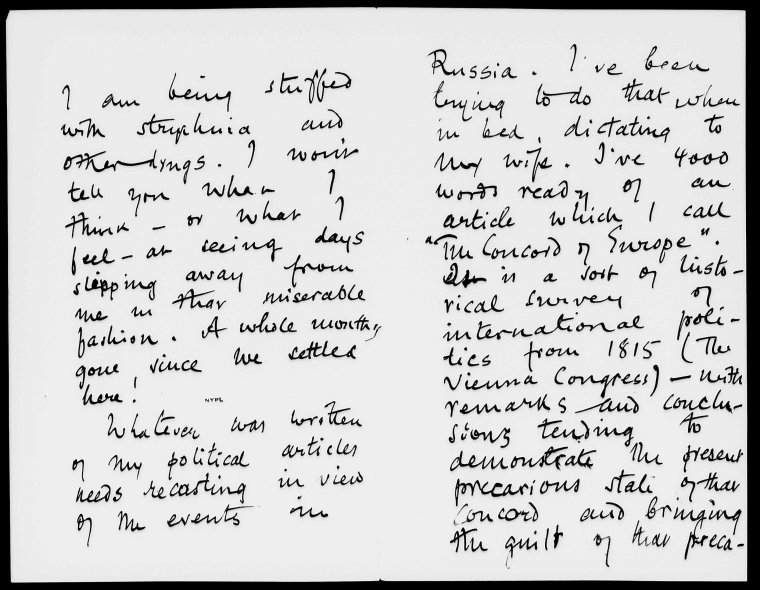 I am being stuffed
with stryphnia and
other drugs. I won't
tell you what I
think – or what I
feel – at seeing days
slipping away from
me in that miserable
fashion. A whole month
gone, since we settled
here!
NYPL
Whatever was written
of my political articles
needs recasting in view
of the events in
Russia. I've been
trying to do that when
in bed, dictating to
my wife. I've 4000
words ready of an
article which I call
"The Concord of Europe".
is a sort of histo-
rical survey of
international poli-
tics from 1815 (The
Vienna Congress) – with
remarks and conclu-
sions tending to
demonstrate the present
precarious state of that
Concord and bringing
the guilt of that preca-